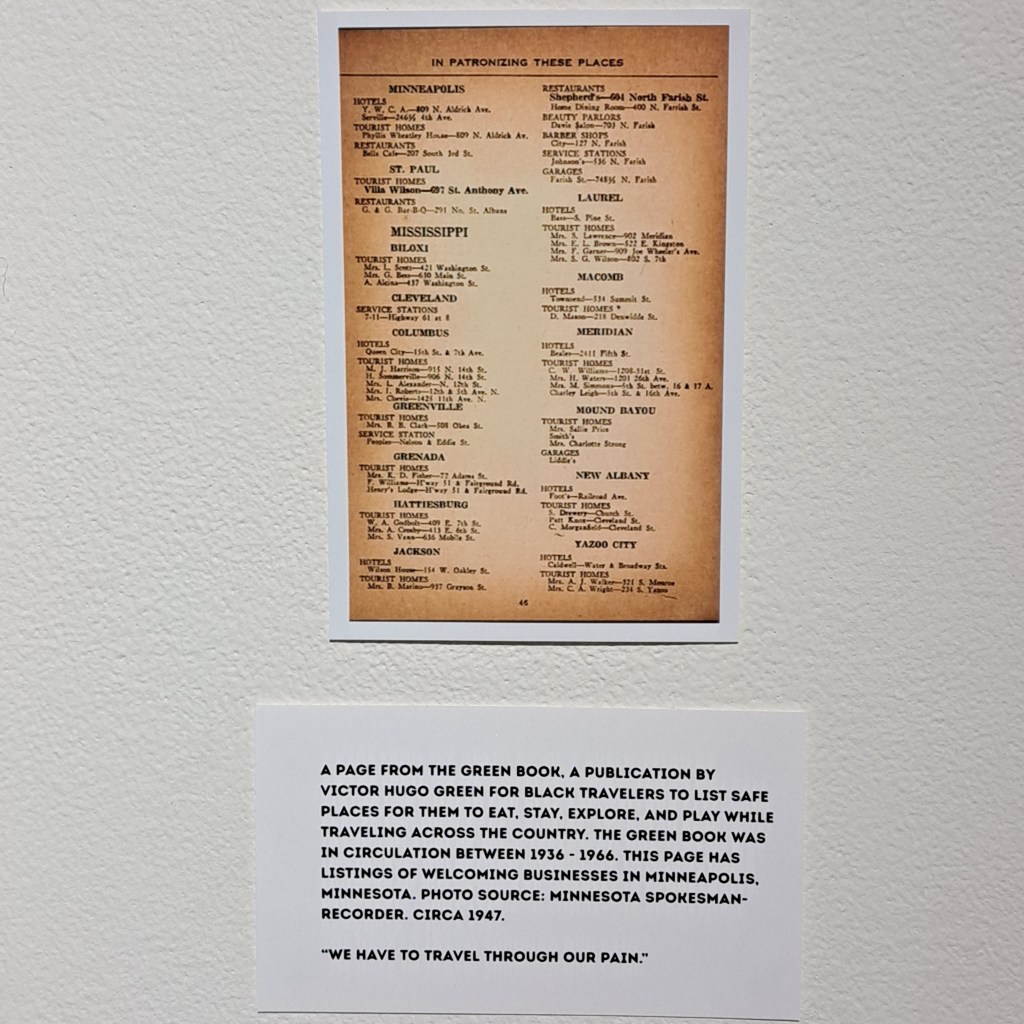 IN PATRONIZING THESE PLACES
MINNEAPOLIS
HOTELS
Y. W. C. A.—809 N. Aldrich Ave.
Serville—246½ 4th Ave.
TOURIST HOMES
Phyllis Wheatley House—809 N. Aldrich Av.
RESTAURANTS
Bells Cafe—207 South 3rd St.
ST. PAUL
TOURIST HOMES
Villa Wilson—697 St. Anthony Ave.
RESTAURANTS
G. & G. Bar-B-Q—291 No. St. Albans
MISSISSIPPI
BILOXI
TOURIST HOMES
Mrs. L. Scott—421 Washington St.
Mrs. G. Bess—630 Main St.
A. Alcina—437 Washington St.
CLEVELAND
SERVICE STATIONS
7-11—Highway 61 at 8
COLUMBUS
HOTELS
Queen City—15th St. & 7th Ave.
TOURIST HOMES
M. J. Harrison—915 N. 14th St.
H. Sommerville—906 N. 14th St.
Mrs. L. Alexander—N. 12th St.
Mrs. I. Roberts—12th & 5th Ave. N.
Mrs. Chevis—1425 11th Ave. N.
GREENVILLE
TOURIST HOMES
Mrs. B. B. Clark—508 Ohea St.
SERVICE STATION
Peoples—Nelson & Eddie St.
GRENADA
TOURIST HOMES
Mrs. K. D. Fisher—72 Adams St.
F. Williams—H'way 51 & Fairground Rd.
Henry's Lodge—H'way 51 & Fairground Rd.
HATTIESBURG
TOURIST HOMES
W. A. Godbolt—409 E. 7th St.
Mrs. A. Crosby—413 E. 6th St.
Mrs. S. Vann—636 Mobile St.
JACKSON
HOTELS
Wilson House—154 W. Oakley St.
TOURIST HOMES
Mrs. B. Marino—937 Grayson St.
RESTAURANTS
Shepherd's—604 North Farish St.
Home Dining Room—400 N. Farrish St.
BEAUTY PARLORS
Davis Salon—703 N. Farish
BARBER SHOPS
City—127 N. Farish
SERVICE STATIONS
Johnson's—536 N. Farish
GARAGES
Farish St.—748½ N. Farish
LAUREL
HOTELS
Bass—S. Pine St.
TOURIST HOMES
Mrs. S. Lawrence—902 Meridian
Mrs. E. L. Brown—522 E. Kingston
Mrs. F. Garner—909 Joe Wheeler's Ave.
Mrs. S. G. Wilson—802 S. 7th
MACOMB
HOTELS
Townsend—534 Summit St.
TOURIST HOMES
D. Mason—218 Denwidde St.
MERIDIAN
HOTELS
Beales—2411 Fifth St.
TOURIST HOMES
C. W. Williams—1208-31st St.
Mrs. H. Waters—1201 26th Ave.
Mrs. M. Simmons—5th St. betw. 16 & 17 A.
Charley Leigh—5th St. & 16th Ave.
MOUND BAYOU
TOURIST HOMES
Mrs. Sallie Price
Smith's
Mrs. Charlotte Strong
GARAGES
Liddle's
NEW ALBANY
HOTELS
Foot's—Railroad Ave.
TOURIST HOMES
S. Drewery—Church St.
Patt Knox—Cleveland St.
C. Morganfield—Cleveland St.
YAZOO CITY
HOTELS
Caldwell—Water & Broadway Sts.
TOURIST HOMES
Mrs. A. J. Walker—321 S. Monroe
Mrs. C. A. Wright—234 S. Yazoo
46
A PAGE FROM THE GREEN BOOK, A PUBLICATION BY
VICTOR HUGO GREEN FOR BLACK TRAVELERS TO LIST SAFE
PLACES FOR THEM TO EAT, STAY, EXPLORE, AND PLAY WHILE
TRAVELING ACROSS THE COUNTRY. THE GREEN BOOK WAS
IN CIRCULATION BETWEEN 1936 - 1966. THIS PAGE HAS
LISTINGS OF WELCOMING BUSINESSES IN MINNEAPOLIS,
MINNESOTA. PHOTO SOURCE: MINNESOTA SPOKESMAN-
RECORDER. CIRCA 1947.
“WE HAVE TO TRAVEL THROUGH OUR PAIN.”